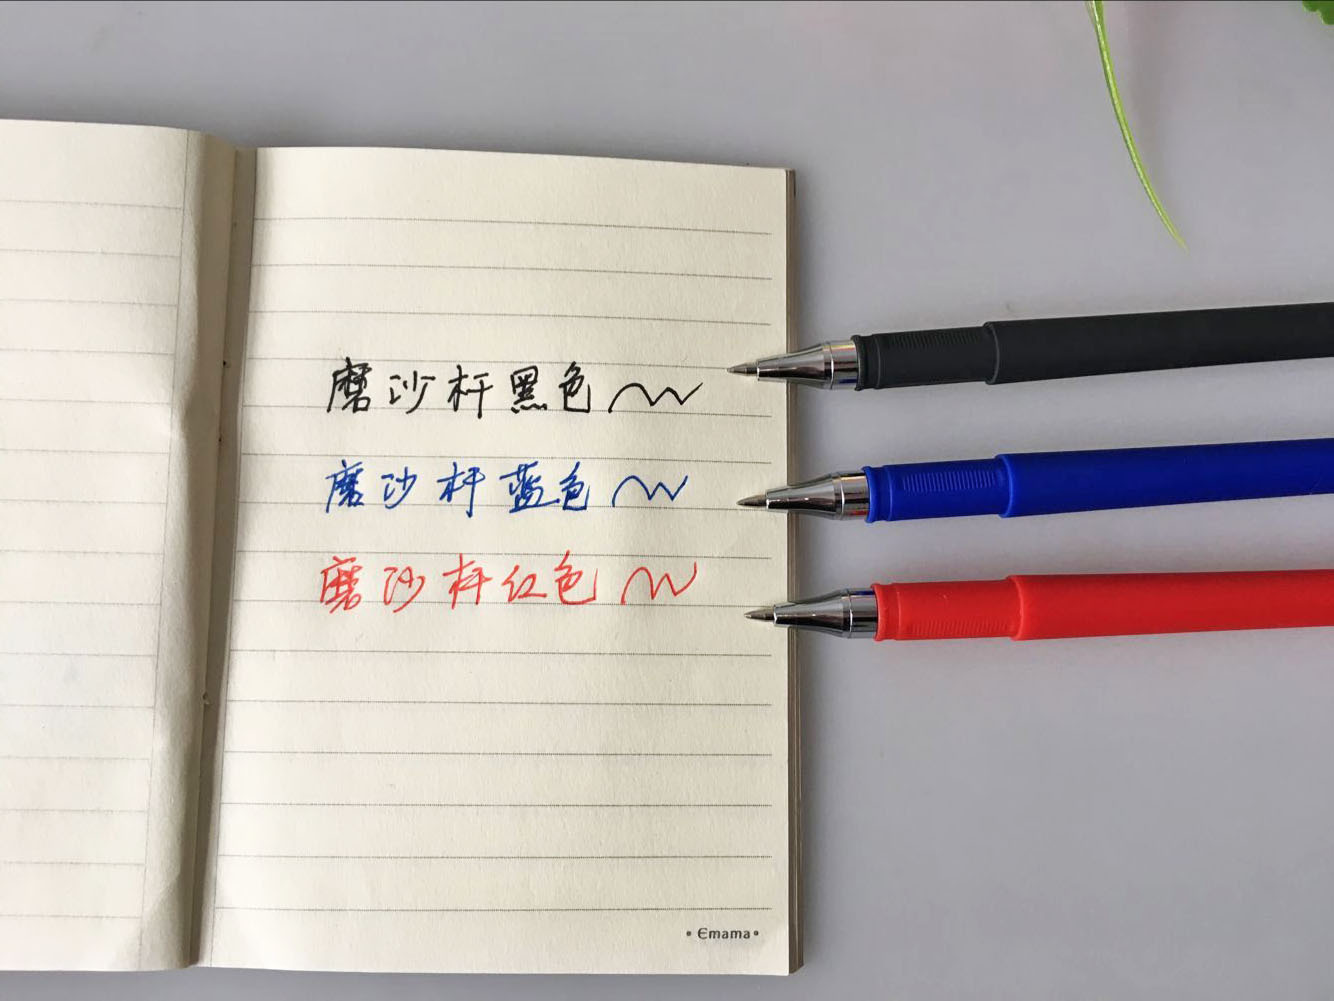 磨沙杆黑色
磨沙杆蓝色
磨沙杆红色
• Emama •